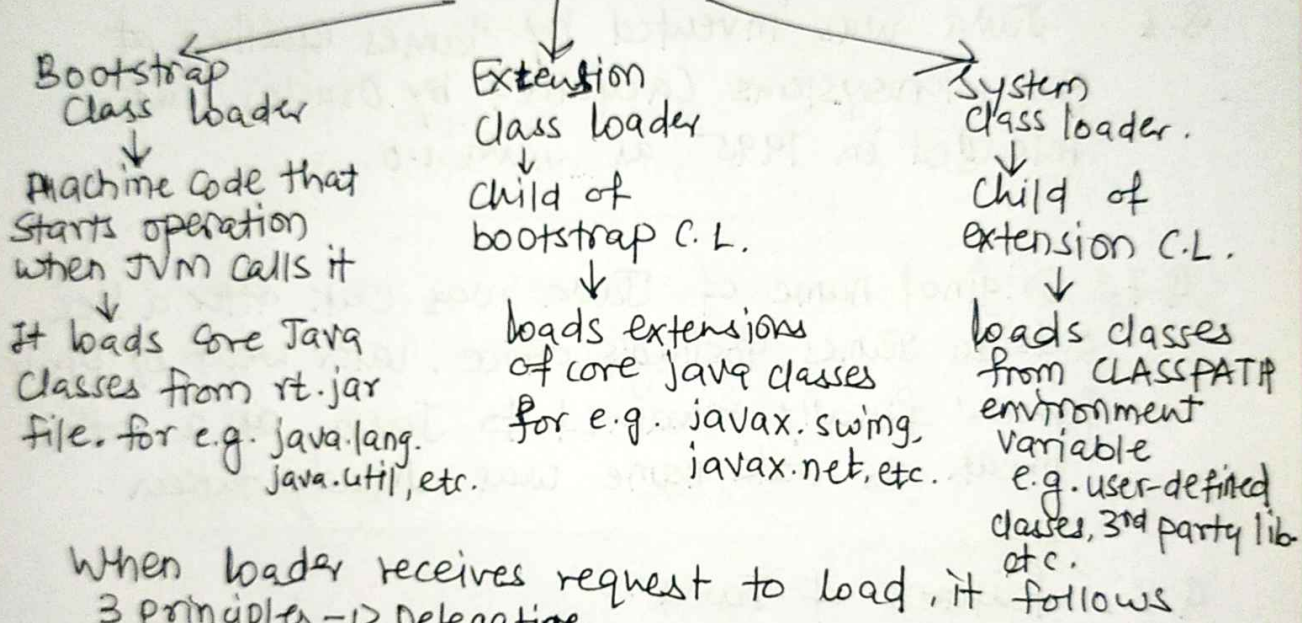 Bootstrap
Class loader
↓
Machine code that
starts operation
when JVM calls it
↓
It loads core Java
classes from rt.jar
file. for e.g. java.lang.
java.util, etc.
Extension
class loader
↓
child of
bootstrap C.L.
↓
loads extensions
of core java classes
for e.g. javax.swing,
javax.net, etc.
System
class loader.
↓
child of
extension C.L.
↓
loads classes
from CLASSPATH
environment
variable
e.g. user-defined
classes, 3rd party lib.
etc.
When loader receives request to load, it follows
3 principles → 1> Delegation